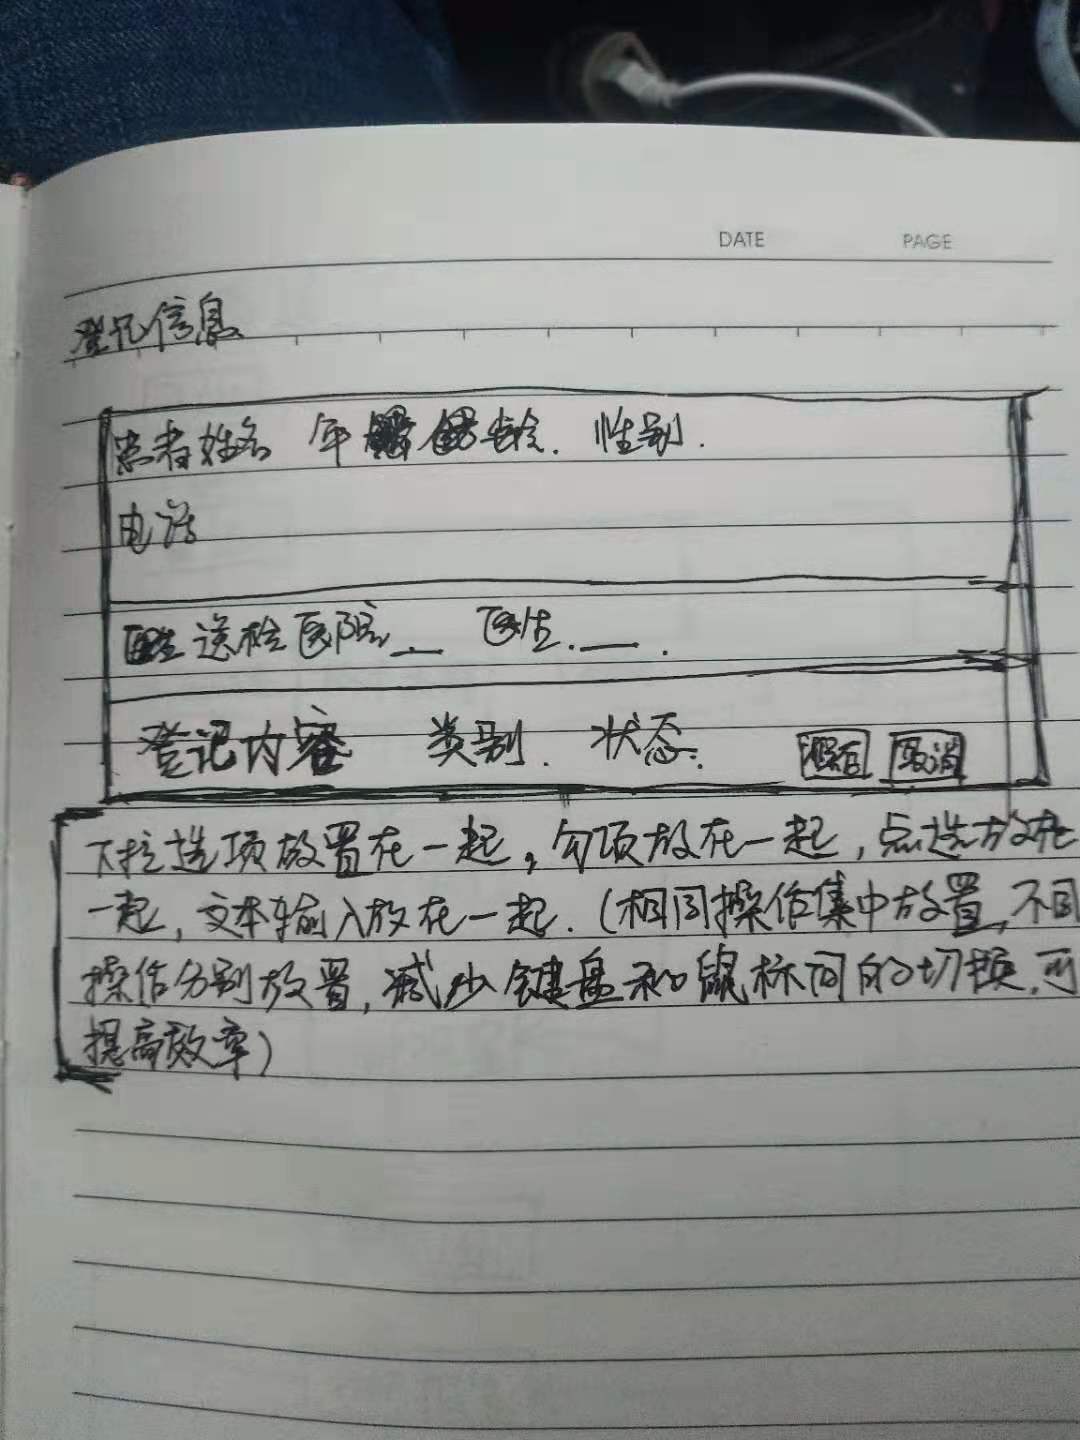 DATE PAGE
登记信息
患者姓名 年龄. 性别.
电话
送检医院__ 医生.__.
登记内容 类别. 状态. 保存 取消
下拉选项放置在一起，勾项放在一起，点选放在
一起，文本输入放在一起.(相同操作集中放置，不同
操作分别放置，减少键盘和鼠标间的切换，可
提高效率)